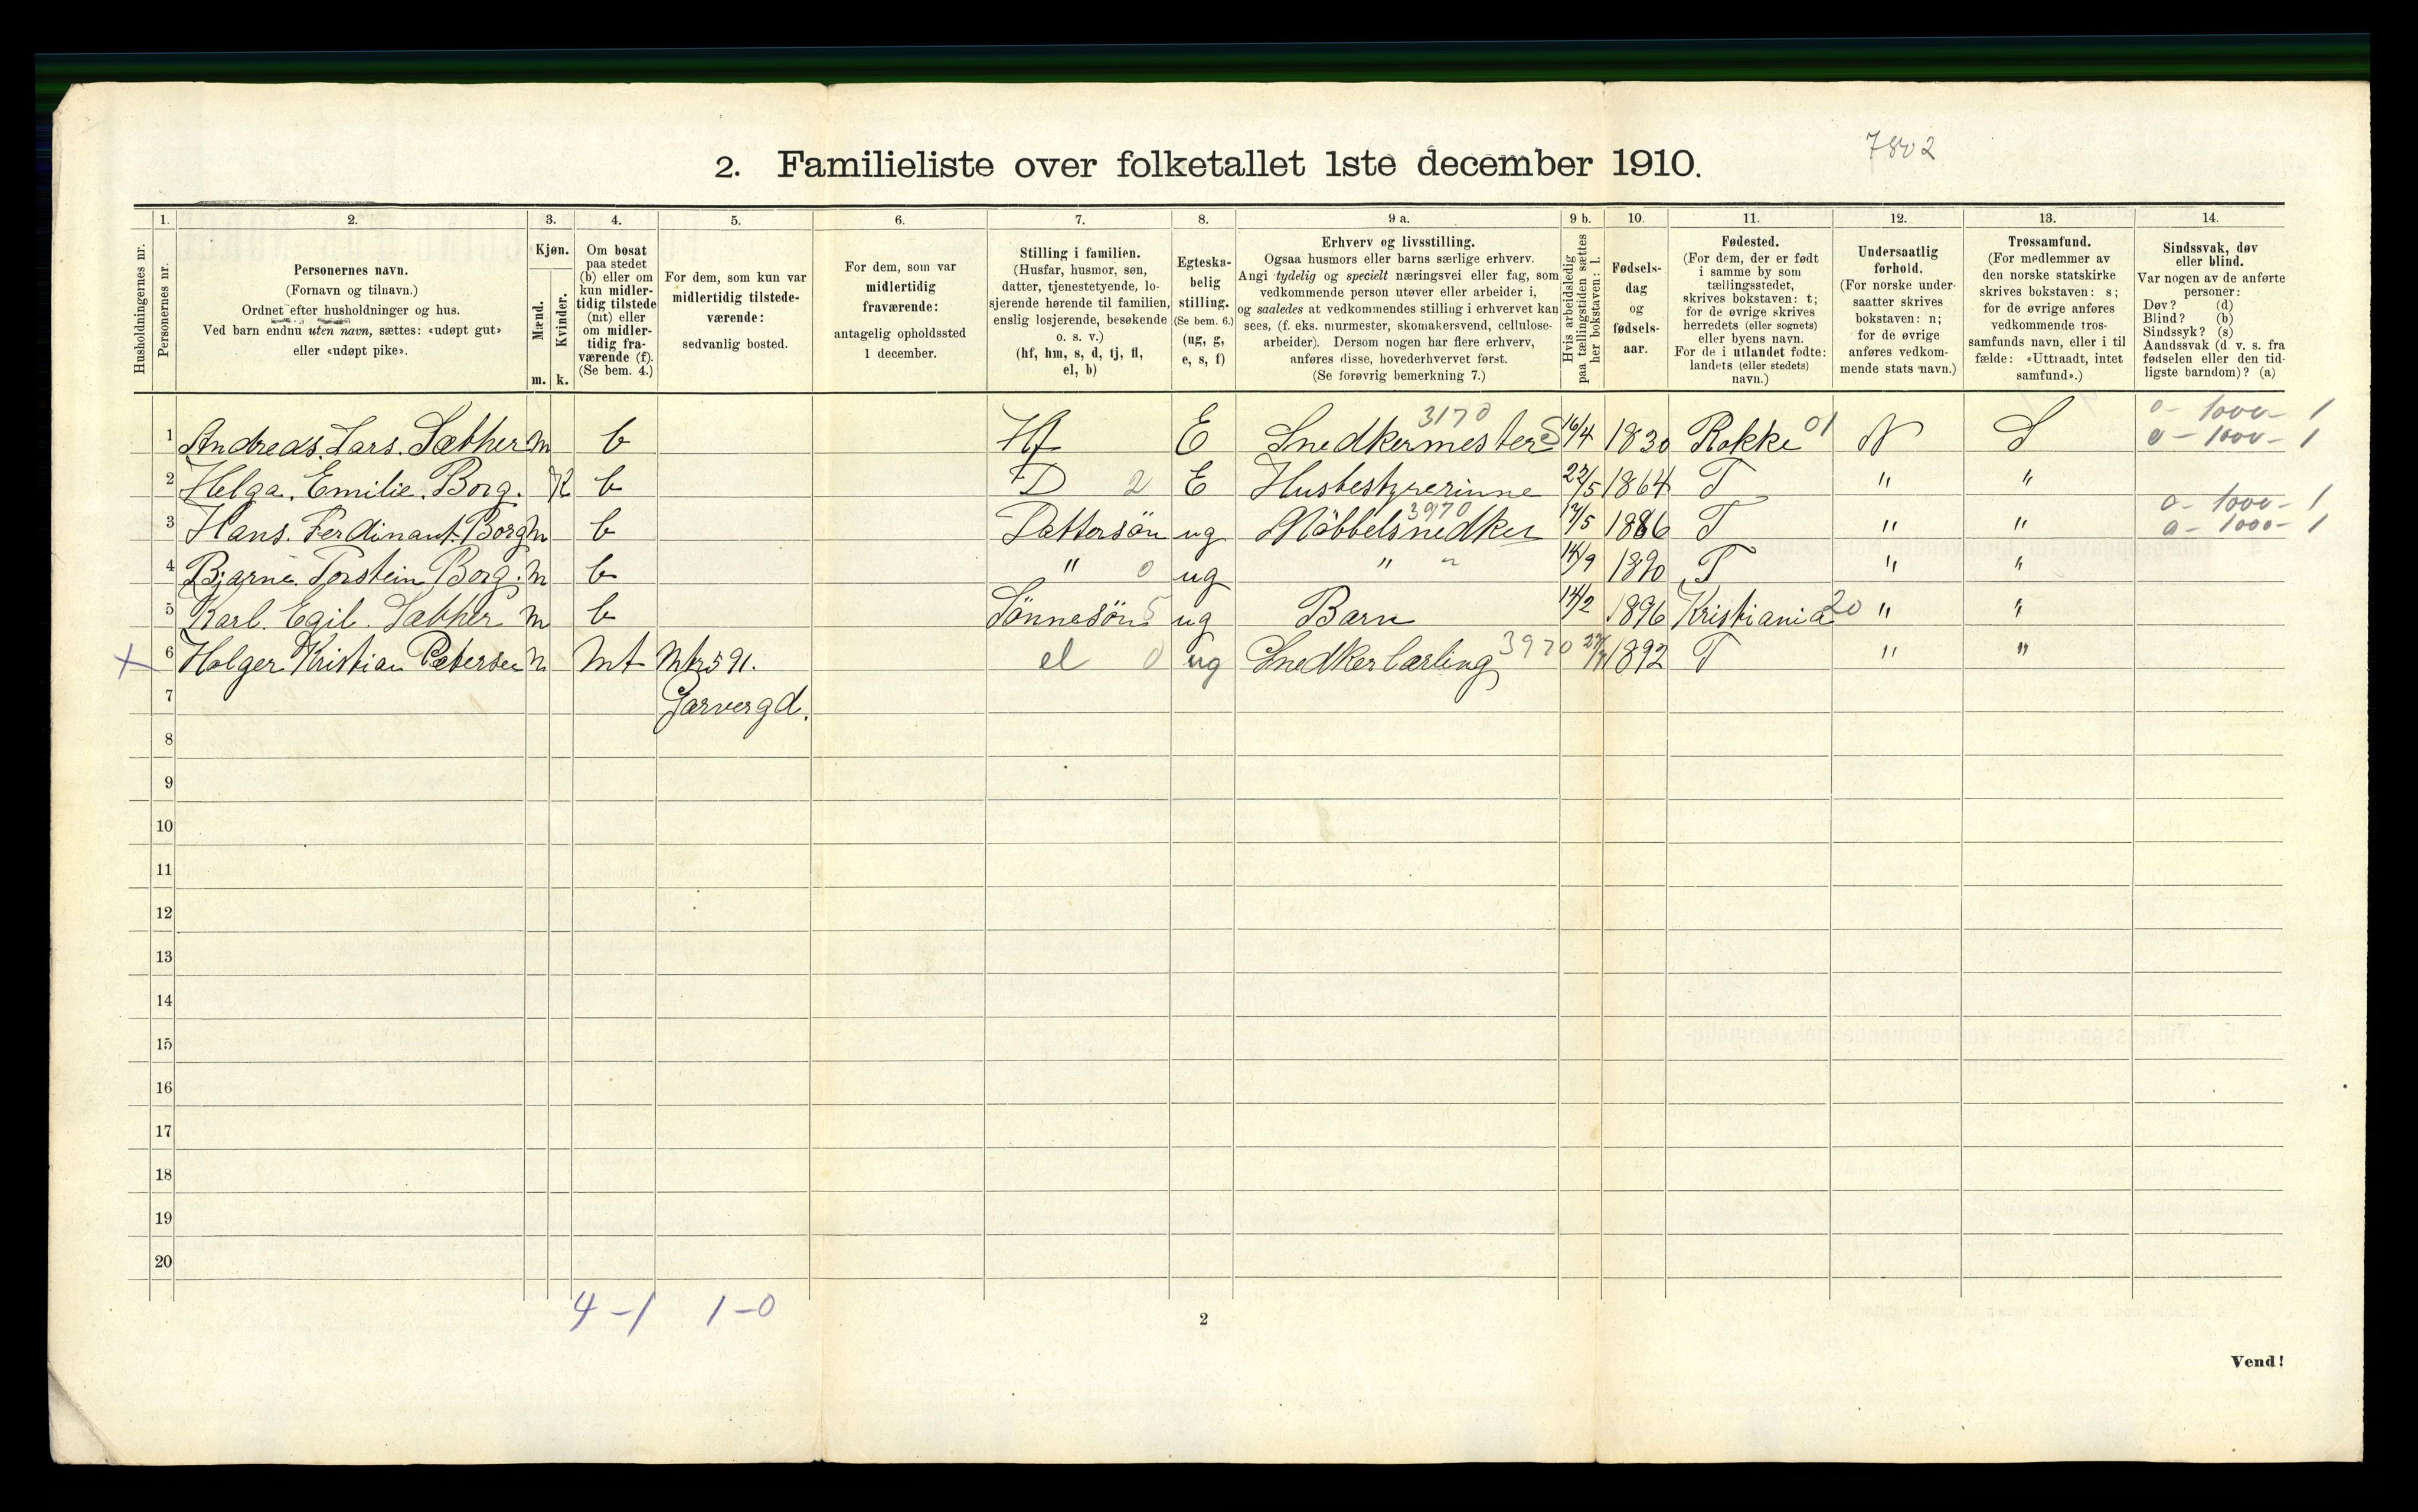 7802
2. Familieliste over folketallet 1ste december 1910.
1. 2. 3. 4. 5. 6. 7. 8. 9 a. 9 b. 10. 11. 12. 13. 14.
Husholdningernes nr.
Personernes nr.
Personernes navn.
(Fornavn og tilnavn.)
Ordnet efter husholdninger og hus.
Ved barn endnu uten navn, sættes: «udøpt gut»
eller «udøpt pike».
Kjøn.
Mænd.
Kvinder.
m. k.
Om bosat
paa stedet
(b) eller om
kun midler-
tidig tilstede
(mt) eller
om midler-
tidig fra-
værende (f).
(Se bem. 4.)
For dem, som kun var
midlertidig tilstede-
værende:
sedvanlig bosted.
For dem, som var
midlertidig
fraværende:
antagelig opholdssted
1 december.
Stilling i familien.
(Husfar, husmor, søn,
datter, tjenestetyende, lo-
sjerende hørende til familien,
enslig losjerende, besøkende
o. s. v.)
(hf, hm, s, d, tj, fl,
el, b)
Egteska-
belig
stilling.
(Se bem. 6.)
(ug, g,
e, s, f)
Erhverv og livsstilling.
Ogsaa husmors eller barns særlige erhverv.
Angi tydelig og specielt næringsvei eller fag, som
vedkommende person utøver eller arbeider i,
og saaledes at vedkommendes stilling i erhvervet kan
sees, (f. eks. murmester, skomakersvend, cellulose-
arbeider). Dersom nogen har flere erhverv,
anføres disse, hovederhvervet først.
(Se forøvrig bemerkning 7.)
Hvis arbeidsledig
paa tællingstiden sættes
her bokstaven: l.
Fødsels-
dag
og
fødsels-
aar.
Fødested.
(For dem, der er født
i samme by som
tællingsstedet,
skrives bokstaven: t;
for de øvrige skrives
herredets (eller sognets)
eller byens navn.
For de i utlandet fødte:
landets (eller stedets)
navn.)
Undersaatlig
forhold.
(For norske under-
saatter skrives
bokstaven: n;
for de øvrige
anføres vedkom-
mende stats navn.)
Trossamfund.
(For medlemmer av
den norske statskirke
skrives bokstaven: s;
for de øvrige anføres
vedkommende tros-
samfunds navn, eller i til-
fælde: «Uttraadt, intet
samfund».)
Sindssvak, døv
eller blind.
Var nogen av de anførte
personer:
Døv? (d)
Blind? (b)
Sindssyk? (s)
Aandssvak (d. v. s. fra
fødselen eller den tid-
ligste barndom)? (a)
o - 1000 - 1
1 Andreas. Lars. Sæther m b Hf E Snedkermester S 3170 16/4 1830 Rokke 01 N S o - 1000 - 1
2 Helga. Emilie. Borg. K b D 2 E Husbestyrerinne 22/5 1864 T " "
o - 1000 - 1
3 Hans. Ferdinant. Borg m b Dattersön ug Möbbelsnedker 3970 17/5 1886 T " " a - 1000 - 1
4 Bjarne. Torstein Borg. m b " 0 ug " " 14/9 1890 T " "
5 Karl. Egil. Sæther m b Sönnesön 5 ug Barn 14/2 1896 Kristiania 20 " "
6 Holger Kristian Petersen m mt Mtr 591. el 0 ug Snedkerlærling 3970 1892 T " "
7 Garvergd.
8
9
10
11
12
13
14
15
16
17
18
19
20
4 - 1 1 - 0
2
Vend!